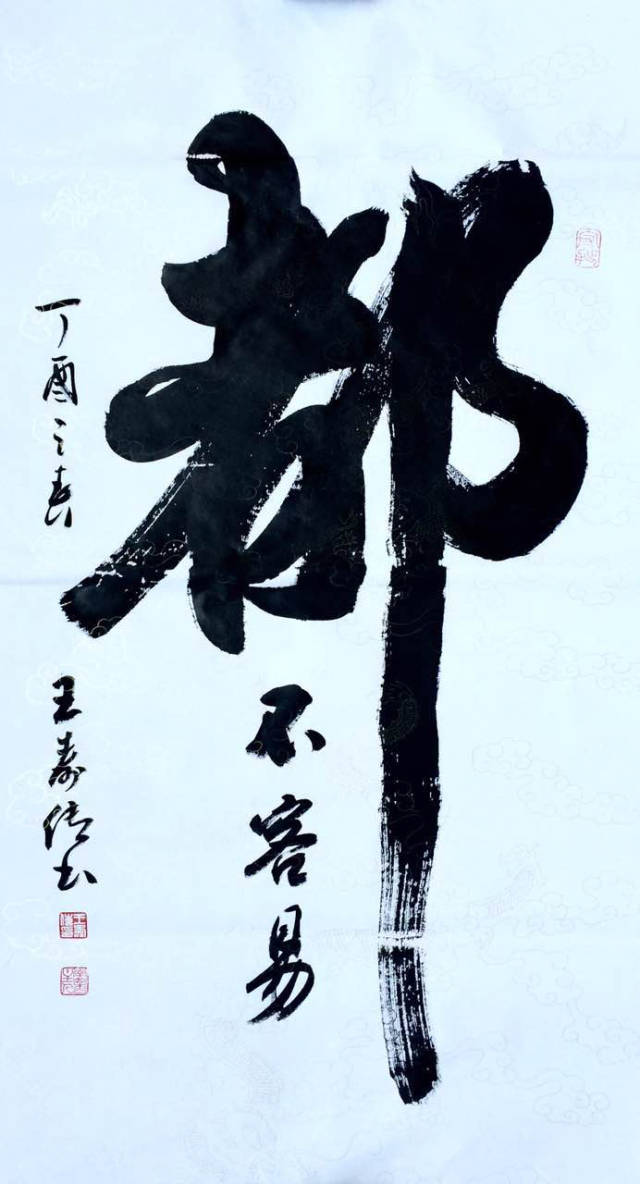 都
不容易
丁酉之春
王寿传书